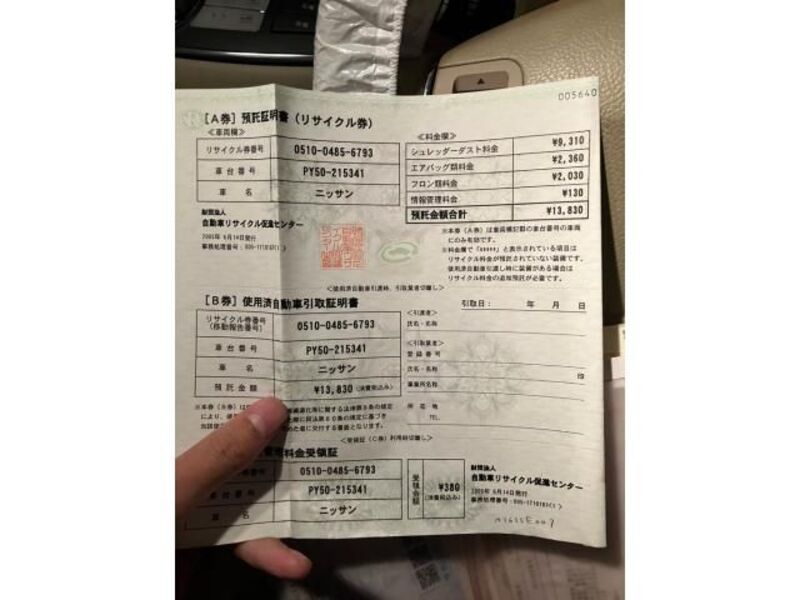 005640
[A券] 預託証明書（リサイクル券）
≪車両欄≫
リサイクル券番号 0510-0485-6793
車台番号 PY50-215341
車名 ニッサン
≪料金欄≫
シュレッダーダスト料金 ¥9,310
エアバッグ類料金 ¥2,360
フロン類料金 ¥2,030
情報管理料金 ¥130
預託金額合計 ¥13,830
財団法人
自動車リサイクル促進センター
2005年 6月14日発行
※本券（A券）は車両欄記載の車台番号の車両
にのみ有効です。
※料金欄で「*****」と表示されている項目は
リサイクル料金が預託されていない装備です。
使用済自動車引渡し時に装備がある場合は
リサイクル料金の追加預託が必要です。
＜使用済自動車引渡時、引取業者切離し＞
[B券] 使用済自動車引取証明書
引取日： 年 月 日
リサイクル券番号
（移動報告番号） 0510-0485-6793
車台番号 PY50-215341
車名 ニッサン
預託金額 ¥13,830 (消費税込み)
≪引渡者≫
氏名・名称
≪引取業者≫
登録番号
氏名・名称
印
事業所名称
所在地
TEL.
＜受領証（C券）利用時切離し＞
料金受領証
0510-0485-6793
車台番号 PY50-215341
車名 ニッサン
受領金額 ¥380
(消費税込み)
財団法人
自動車リサイクル促進センター
2005年 6月14日発行